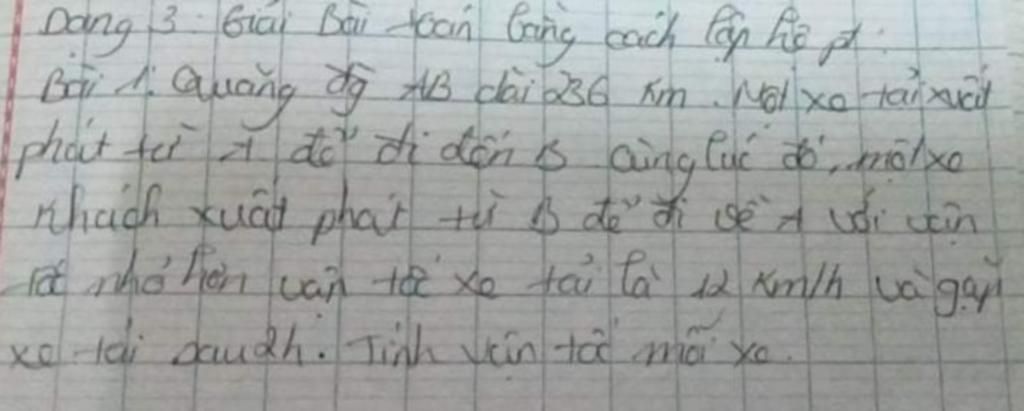 Dạng 3: Giải Bài toán bằng cách lập hệ pt:
Bài 1: Quãng đg AB dài 236 km. Một xe tải xuất
phát từ A để đi đến B cùng lúc đó, một xe
khách xuất phát từ B để đi về A với vận
tốc nhỏ hơn vận tốc xe tải là 12 km/h và gặp
xe tải sau 2h. Tính vận tốc mỗi xe.